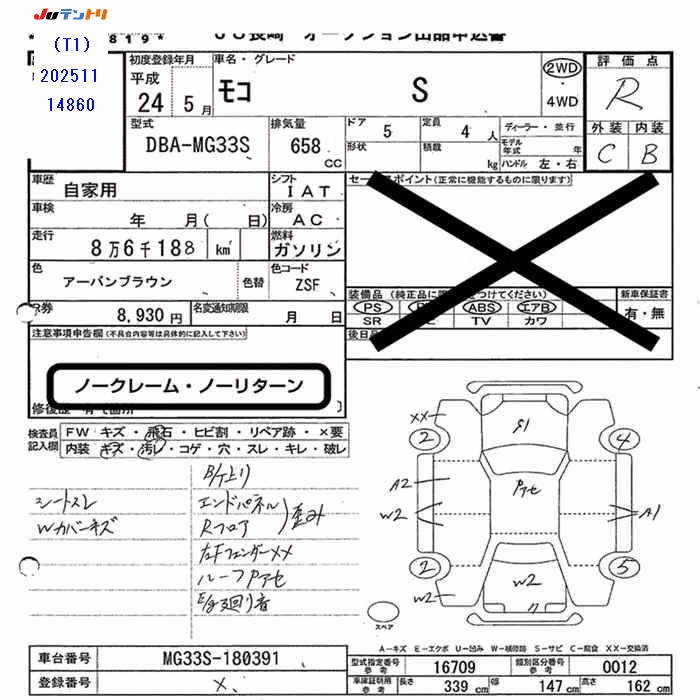 Juテントリ
819* JU長崎 オークション出品申込書
(T1)
202511
14860
初度登録年月 車名・グレード
平成
24 5月 モコ S
2WD
・4WD
評価点
R
外装 内装
C B
型式 排気量
DBA-MG33S 658 CC
ドア 5 定員 4 人 ディーラー・並行
形状 積載 kg モデル年式 年
ハンドル 左・右
車歴 自家用 シフト IAT
車検 年 月( 日) 冷房 AC
走行 8万6千188 km 燃料 ガソリン
色 アーバンブラウン 色替 色コード ZSF
R券 8,930円 名変通知期限 月 日
セールスポイント(正常に機能するものに限ります)
装備品(純正品に つけてください) 新車保証書
PS ABS エアB 有・無
SR TV カワ
後日品
注意事項申告欄(不具合内容等は具体的に記入して下さい)
ノークレーム・ノーリターン
修復歴
検査員記入欄
FW キズ・飛石・ヒビ割・リペア跡・×要
内装 キズ・汚レ・コゲ・穴・スレ・キレ・破レ
シートスレ
Wカバーキズ
B/下上リ
エンドパネル
Rフロア
歪み
左Fフェンダー××
ルーフPアセ
E/g廻り音
XX
S1
2
4
A2
W2
Pアセ
A1
2
5
W2
W2
スペア
A-キズ E-エクボ U-凹み W-補修跡 S-サビ C-腐食 XX-交換済
車台番号 MG33S-180391
登録番号 ×
型式指定番号 参考 16709 類別区分番号 参考 0012
車庫証明用 参考 長さ 339 cm 幅 147 cm 高さ 162 cm